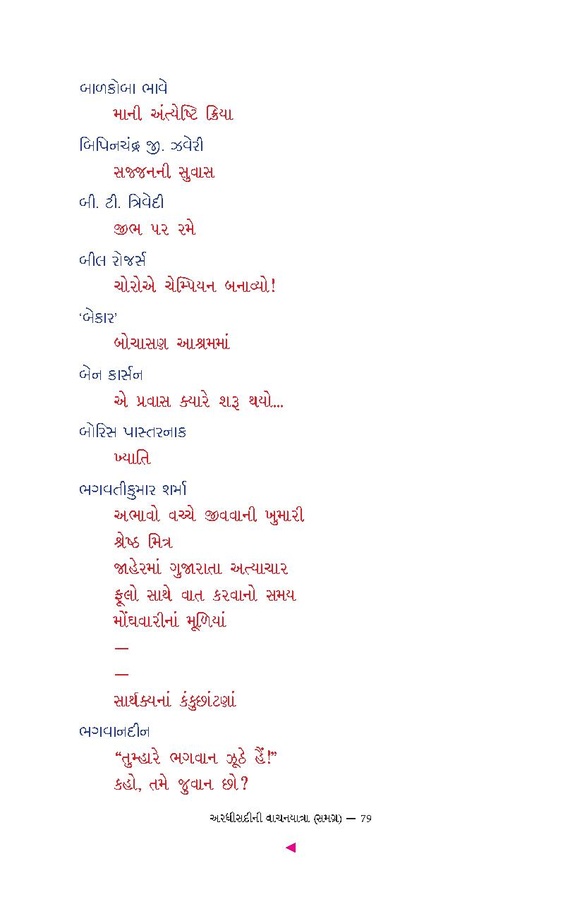 બાળકોબા ભાવે
માની અંત્યેષ્ટિ ક્રિયા
બિપિનચંદ્ર જી. ઝવેરી
સજ્જનની સુવાસ
બી. ટી. ત્રિવેદી
જીભ પર રમે
બીલ રોજર્સ
ચોરોએ ચેમ્પિયન બનાવ્યો!
‘બેકાર’
બોચાસણ આશ્રમમાં
બેન કાર્સન
એ પ્રવાસ ક્યારે શરૂ થયો...
બોરિસ પાસ્તરનાક
ખ્યાતિ
ભગવતીકુમાર શર્મા
અભાવો વચ્ચે જીવવાની ખુમારી
શ્રેષ્ઠ મિત્ર
જાહેરમાં ગુજારાતા અત્યાચાર
ફૂલો સાથે વાત કરવાનો સમય
મોંઘવારીનાં મૂળિયાં
—
—
સાર્થક્યનાં કંકુછાંટણાં
ભગવાનદીન
“તુમ્હારે ભગવાન ઝૂઠે હૈં!”
કહો, તમે જુવાન છો?
અરધીસદીની વાચનયાત્રા (સમગ્ર) — 79